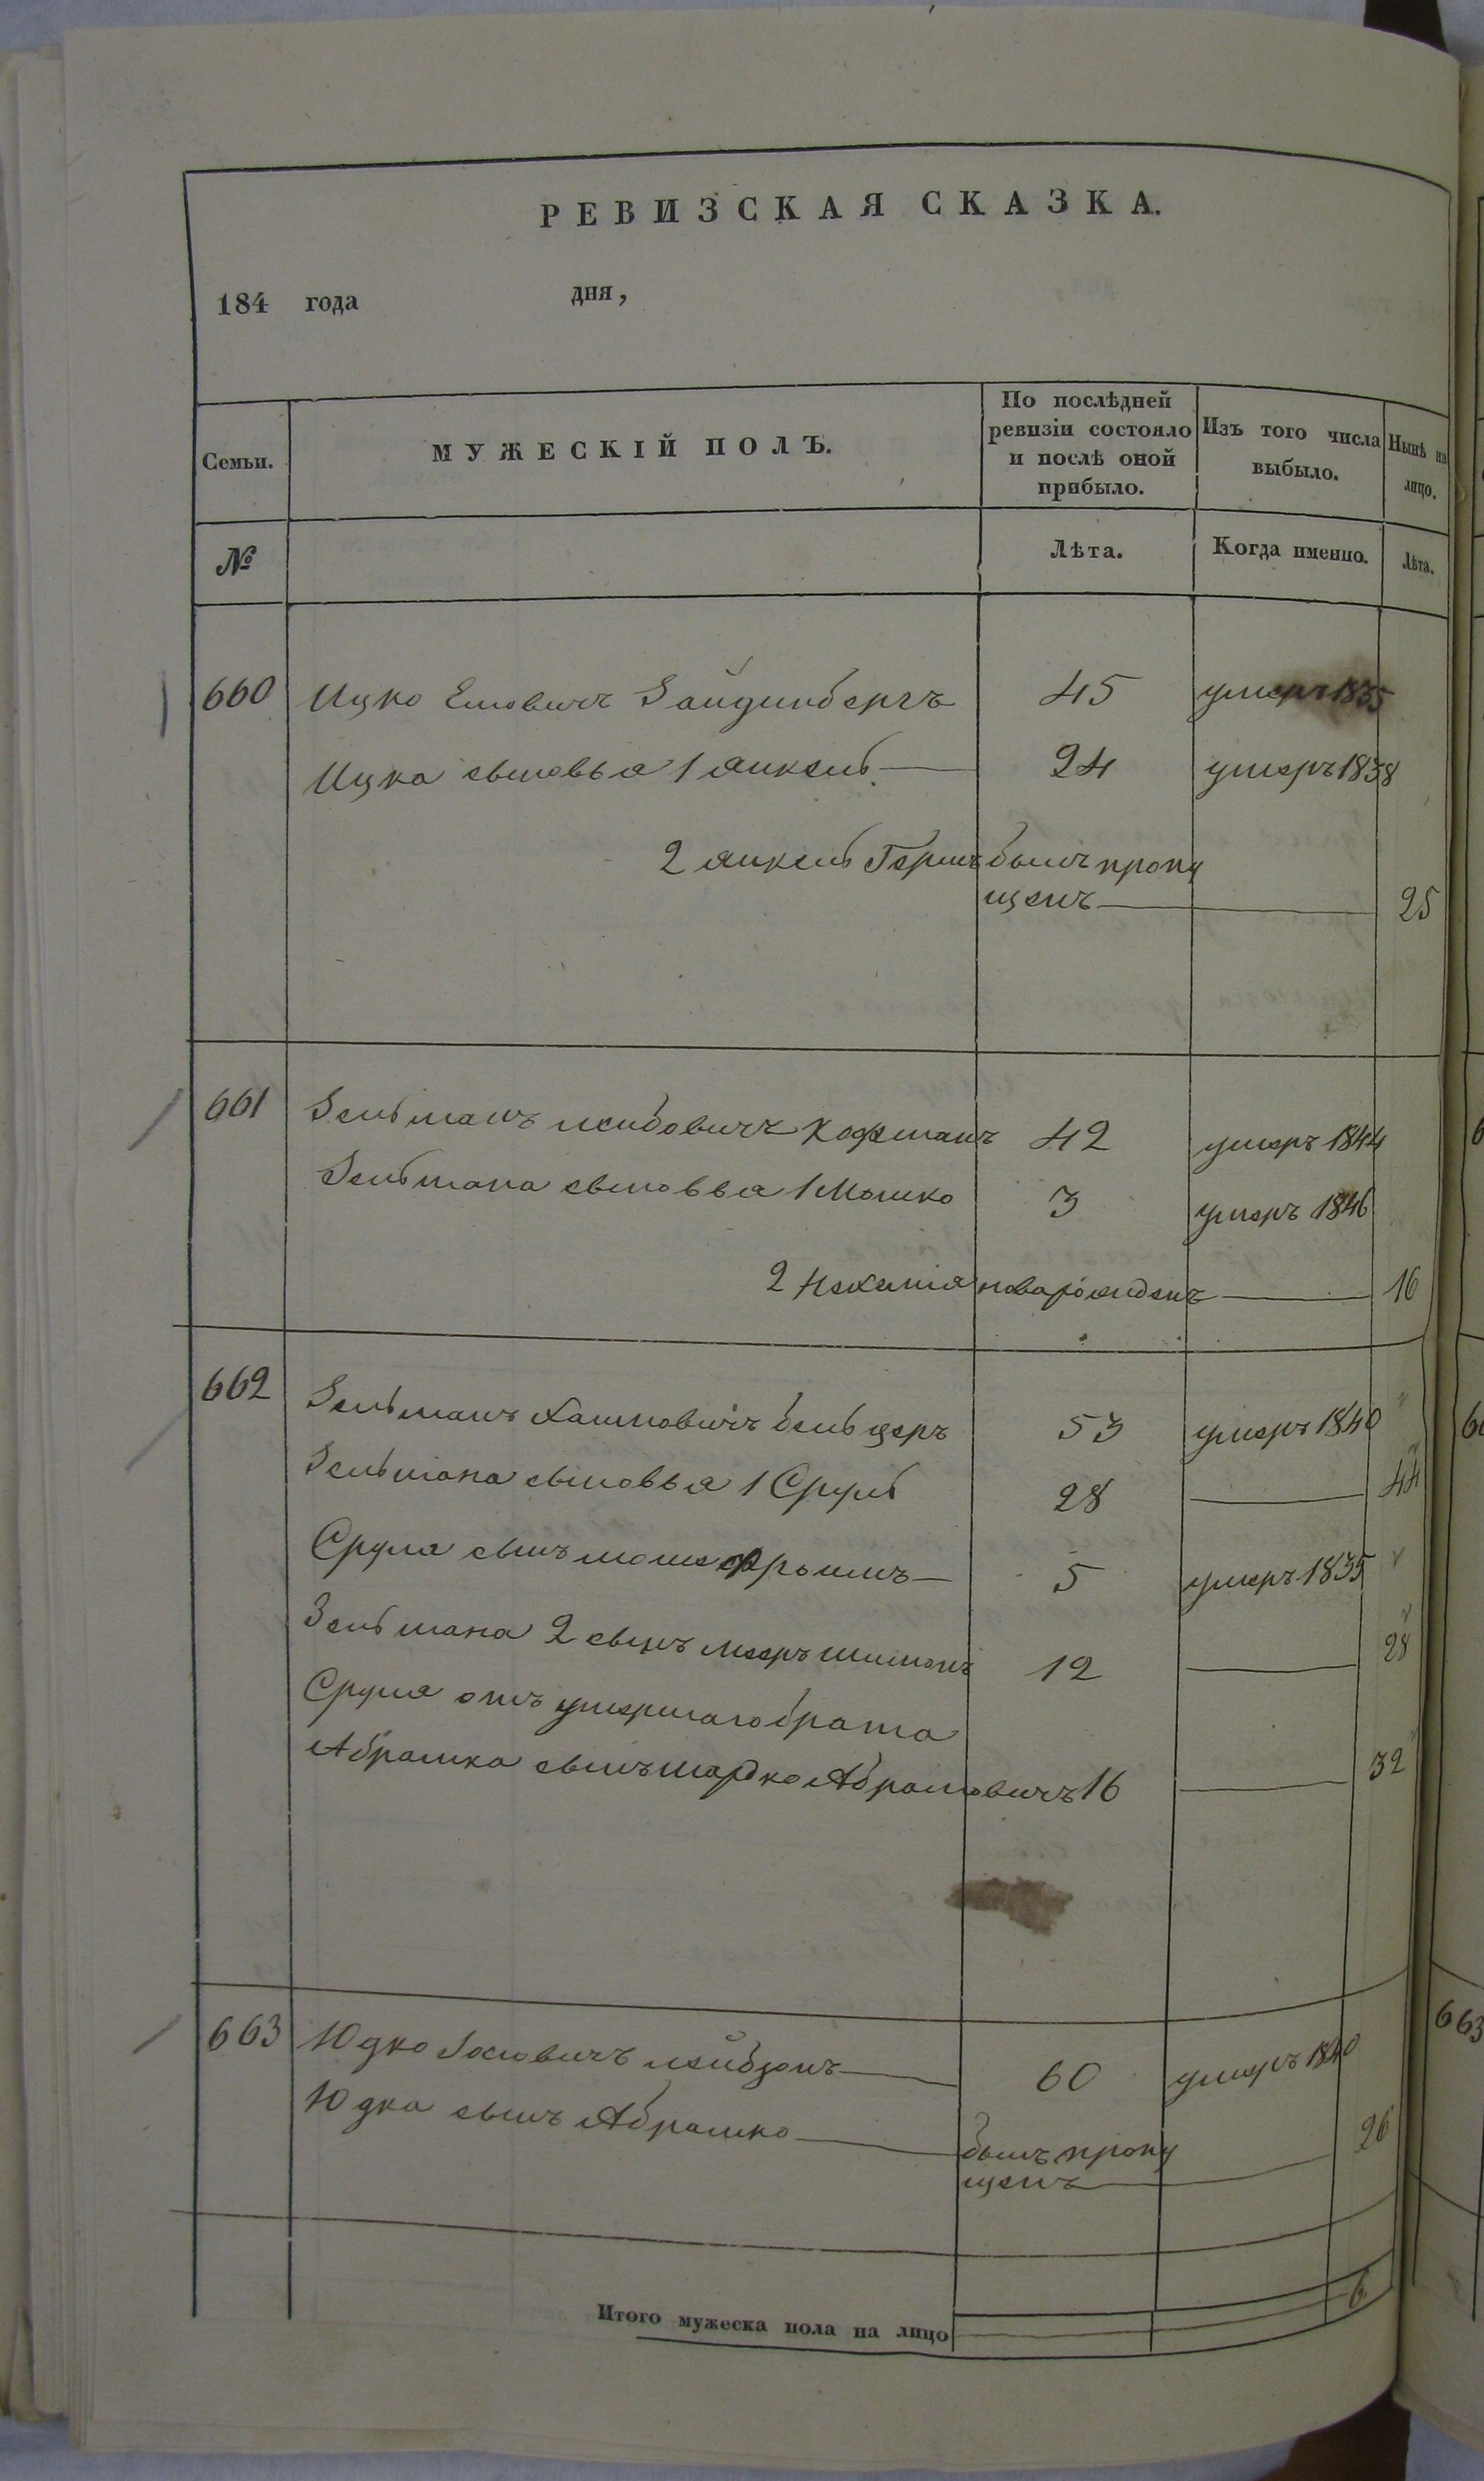 РЕВИЗСКАЯ СКАЗКА.
184 года дня,
Семьи. МУЖЕСКІЙ ПОЛЪ. По послѣдней ревизіи состояло и послѣ оной прибыло. Изъ того числа выбыло. Нынѣ на лицо.
№ Лѣта. Когда именно. Лѣта.
660 Ицко Елиовичъ Зайдинбергъ 45 умеръ 1835
Ицка сыновья 1 Янкель 24 умеръ 1838
2 Янкель Гершъ былъ пропу
щенъ 25
661 Зельманъ Лейбовичъ Кофманъ 42 умеръ 1844
Зельмана сыновья 1 Мошко 3 умеръ 1846
2 Нехемія новарожденъ 16
662 Зельманъ Хаимовичъ Бельцеръ 53 умеръ 1840
Зельмана сыновья 1 Сруль 28 44
Сруля сынъ Моше Фроимъ 5 умеръ 1835
Зельмана 2 сынъ Мееръ Шимонъ 12 28
Сруля отъ умершаго брата
Абрамка сынъ Мордко Абрамовичъ 16 32
663 Юдко Іосіовичъ Лейбзонъ 60 умеръ 1840
Юдка сынъ Абрамко былъ пропу 26
щенъ
Итого мужеска пола на лицо 6
663